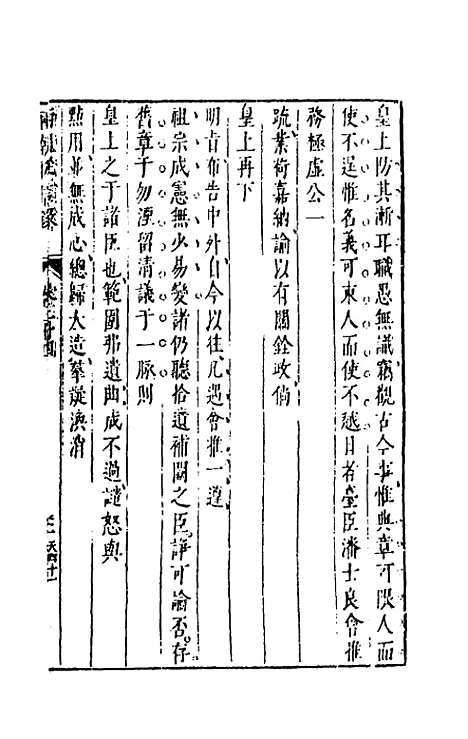 皇上防其漸耳職愚無識竊觀古今事惟典章可限人而
使不逞惟名義可束人而使不越日者臺臣潘士良會推
務極虛公一
疏業荷嘉納諭以有關銓政倘
皇上再下
明旨布告中外自今以往凡遇會推一遵
祖宗成憲無少易變諸仍聽拾遺補闕之臣諍可論否存
舊章于勿湮留清議于一脉則
皇上之于諸臣也範圍那遺曲成不過譴怒與
點用並無成心總歸大造羣疑渙消